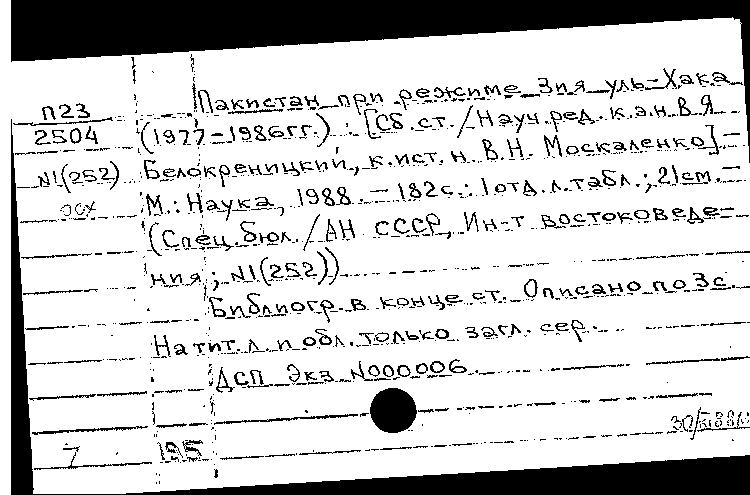 П23
2504
N1(252)
осх
Пакистан при режиме Зия уль-Хака
(1977-1986гг.) : [Сб.ст./Науч.ред.к.э.н.В.Я
Белокреницкий, к.ист.н. В.Н. Москаленко].-
М.: Наука, 1988. - 182с.: 1отд.л.табл.; 21см.-
(Спец.бюл./АН СССР, Ин-т востоковеде-
ния; N1(252))
Библиогр.в конце ст. Описано по 3с
На тит.л.и обл.только загл.сер.
ДСП Экз.N000006.
7 195